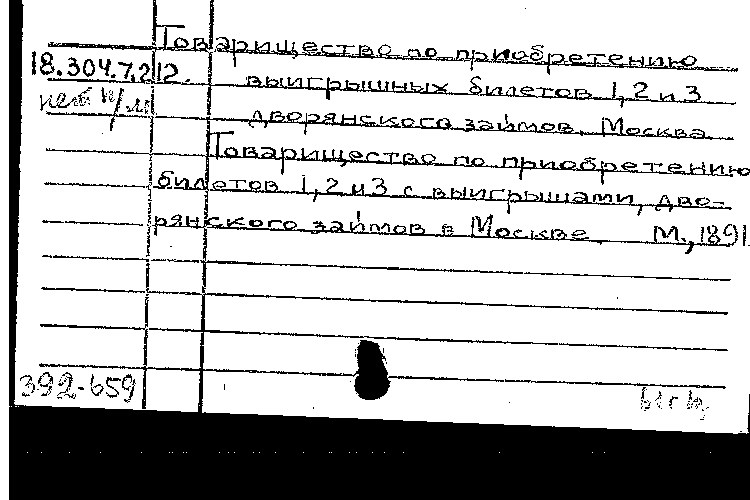 Товарищество по приобретению
18.304.7.212. выигрышных билетов 1, 2 и 3
нет
дворянского займов. Москва.
Товарищество по приобретению
билетов 1, 2 и 3 с выигрышами, дво-
рянского займов в Москве. М., 1891
392-659